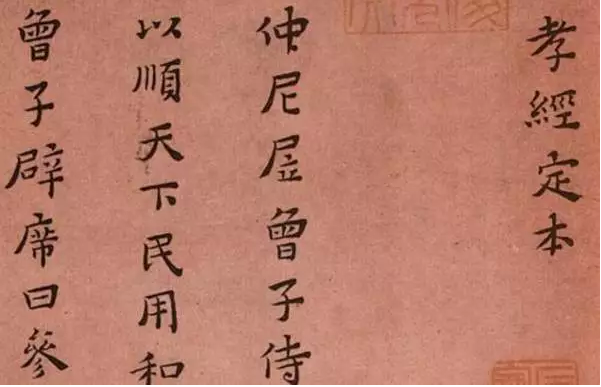 孝經定本
仲尼凥曾子侍
以順天下民用和
曾子辟席曰參